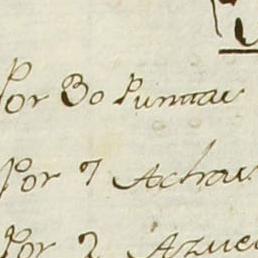 Por 30 Puntas
Por 7 Achas
Por 2 Azue